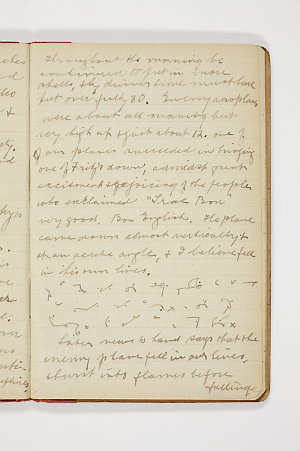 Throughout the morning he
continued to put in more
shells, by dinner time must have
put over fully 30. Enemy aeroplanes
were about all morning but
very high up & just about 12. one of
our planes succeeded in bringing
one of Fritz's down, admidst great
excitement & rejoicing of the people
who exclaimed "Trae Bon"
very good, Bon English. The plane
came down almost vertically &
at an acute angle, & I believe fell
in his own lines.
Later news to hand says that the
enemy plane fell in our lines,
& burst into flames before
falling